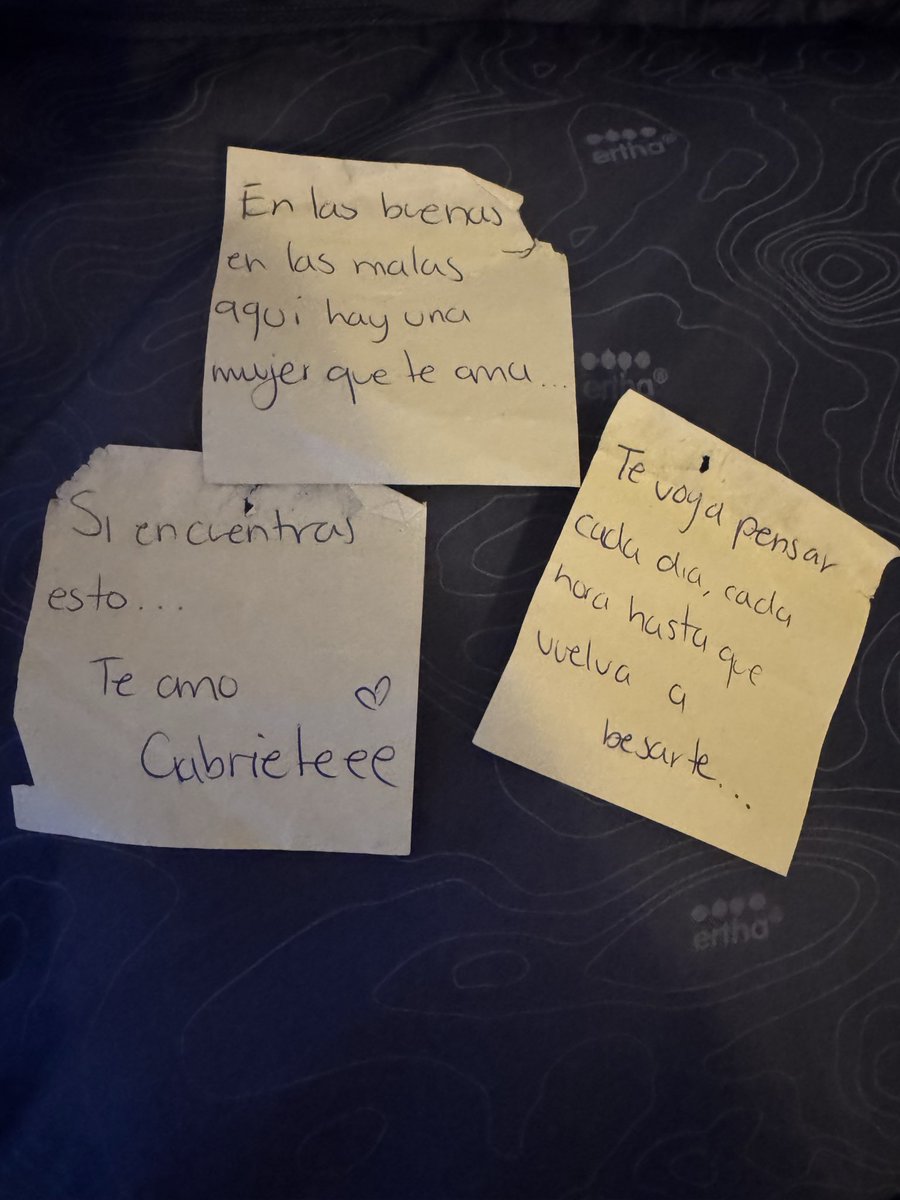 En las buenas
en las malas
aquí hay una
mujer que te ama...
Si encuentras
esto...
Te amo
Gabrieleee
Te voy a pensar
cada día, cada
hora hasta que
vuelva a
besarte...
ertha®
ertha®
ertha®